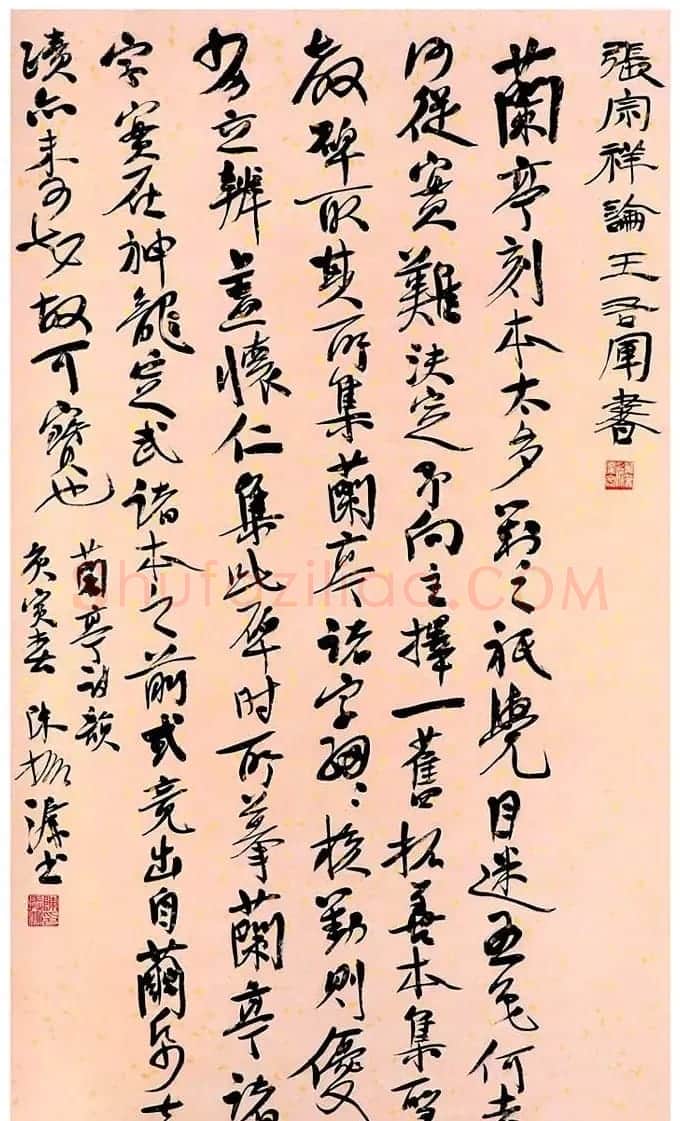 張宗祥論王右軍書
蘭亭刻本太多對之祇覺目迷五色何去
何從實難決定予向主擇一舊拓善本集聖
教碑取其所集蘭亭諸字細〻校勘則優
劣立辨蓋懷仁集此碑时所摹蘭亭諸
字實在神龍定武諸本之前或竟出自繭帋
蹟亦未可知故可寶也
蘭亭詩韻
庚寅春 陳振濂書
Shufaziliao.COM